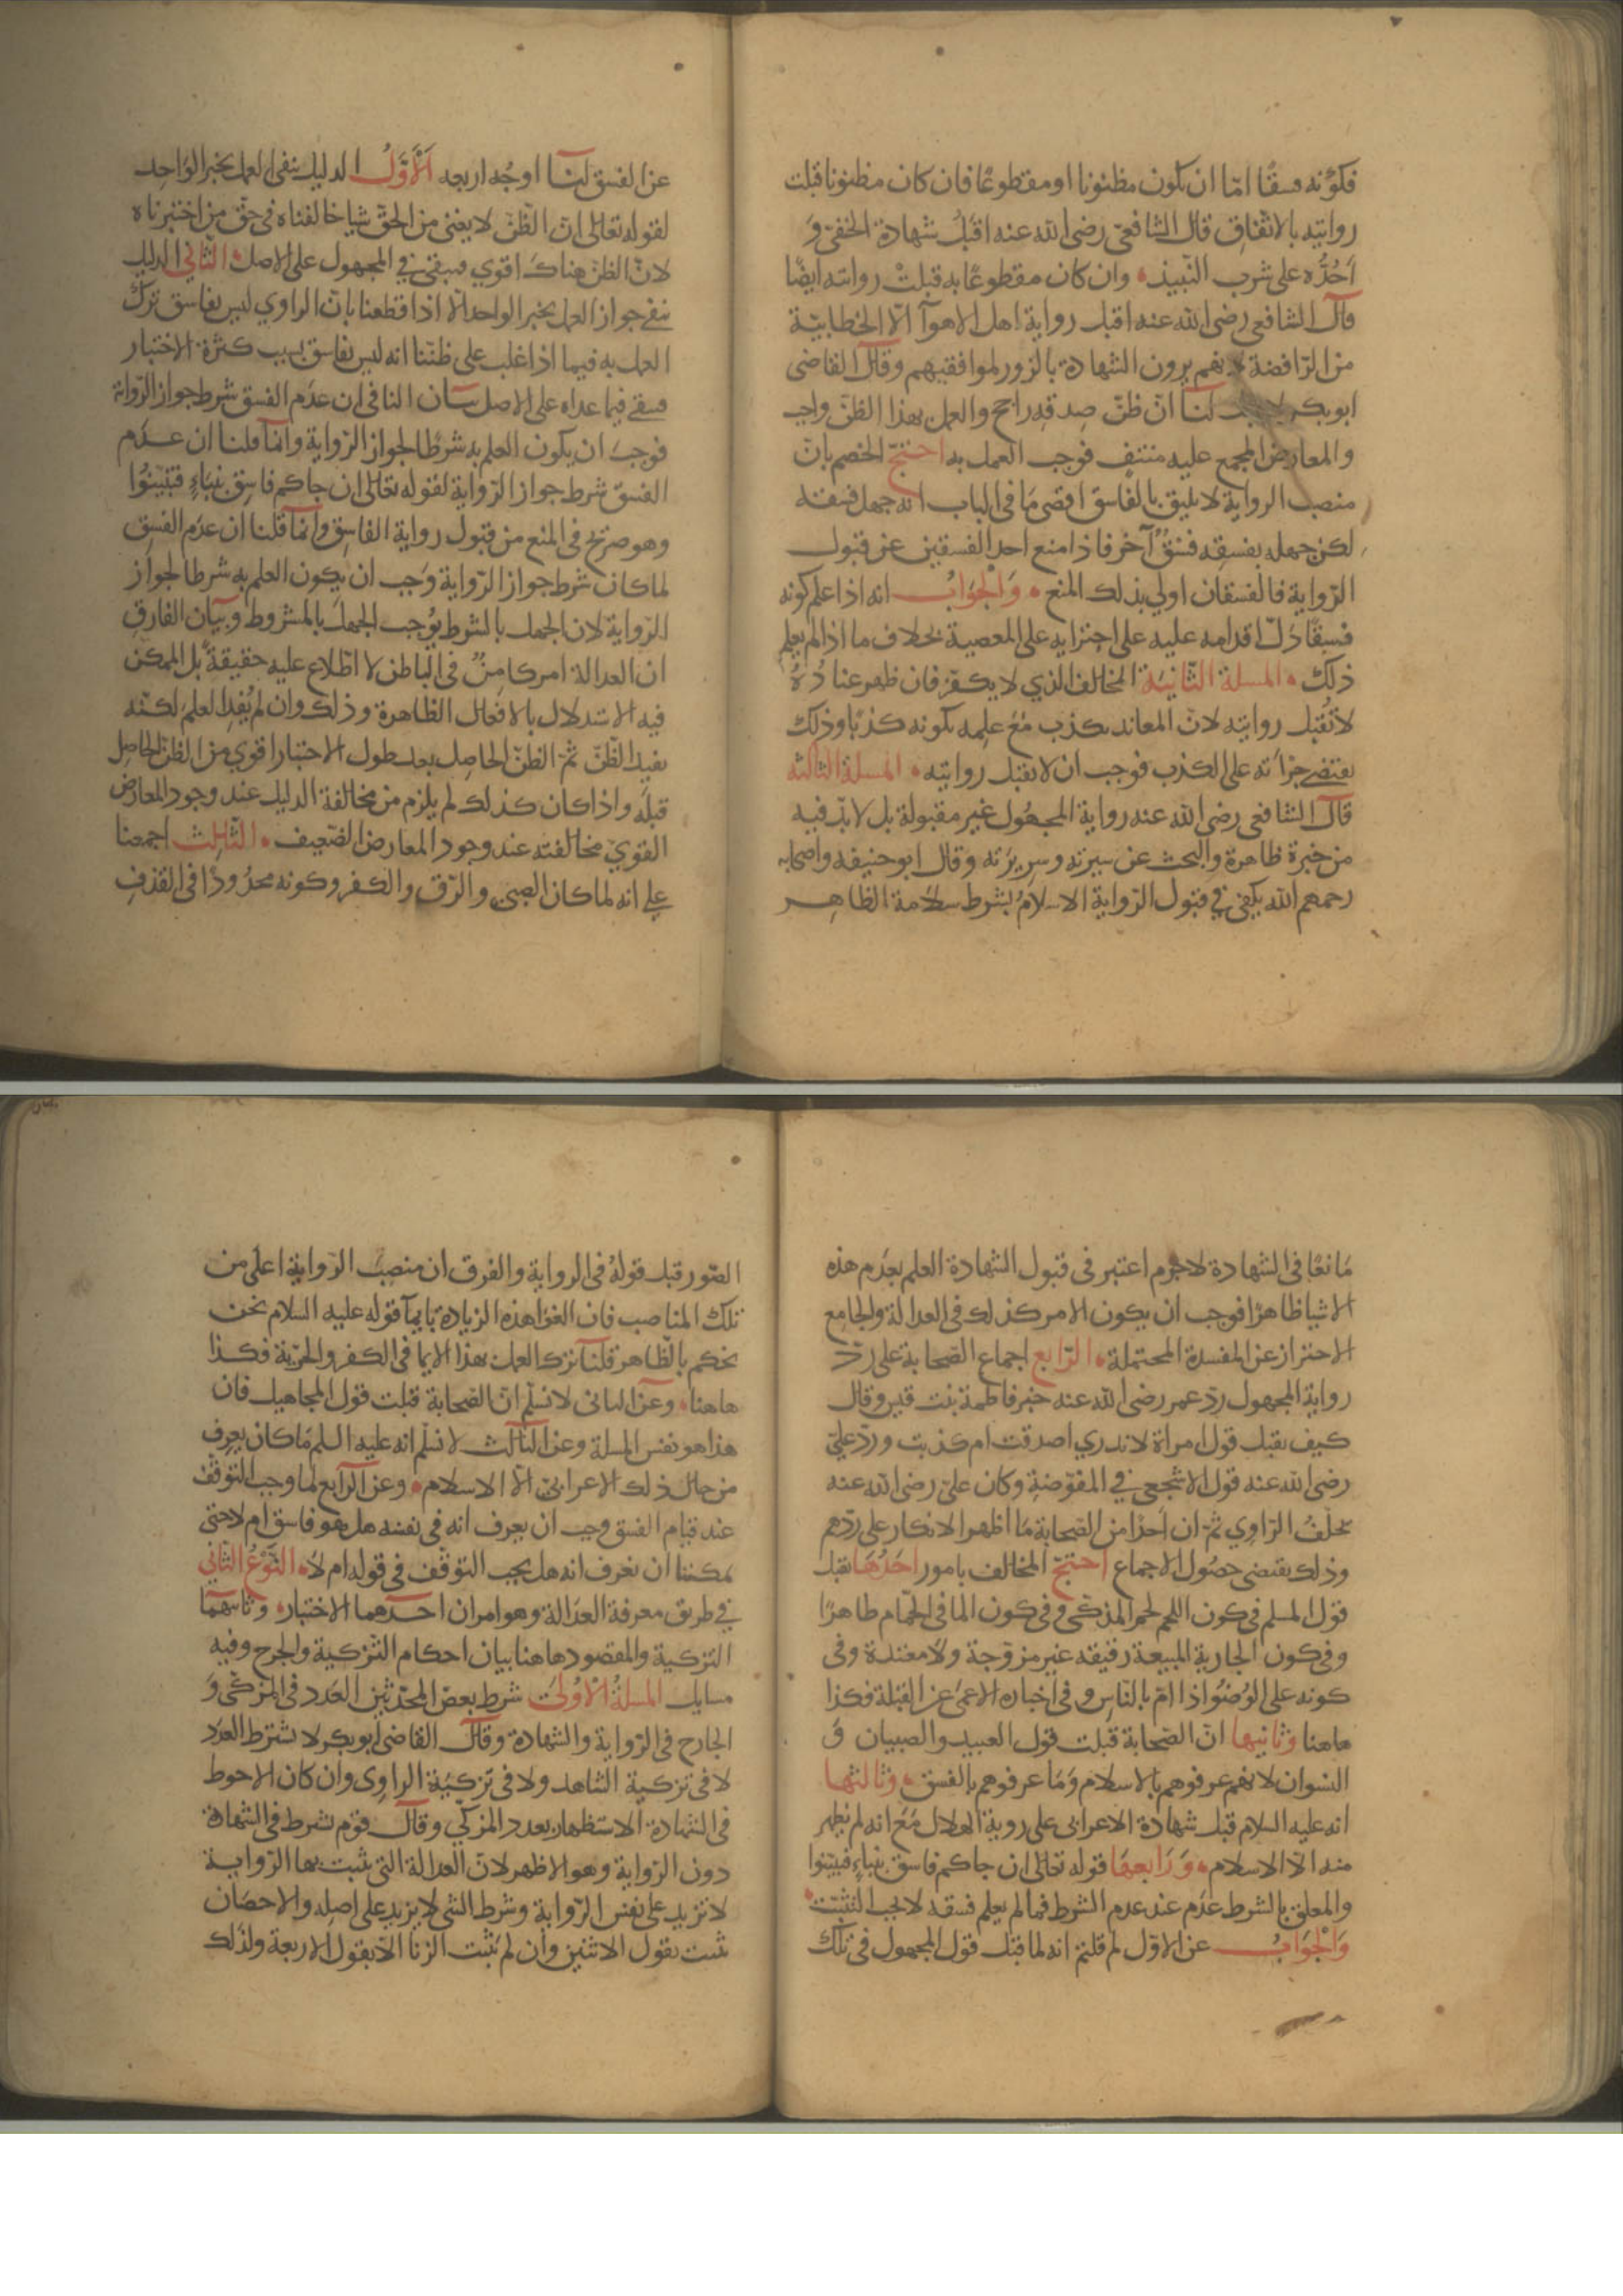 فكونه فسقًا امّا ان يكون مظنونا او مقطوعًا فان كان مظنونا قبلت
روايته بالاتفاق قال الشافعي رضي الله عنه اقبَلُ شهادة الحنفي وَ
اَحُدُّه على شرب النّبيذ وان كان مقطوعًا به قبلتْ روايته ايضًا
قال الشافعي رضي الله عنه اقبل رواية اهل الاهوآ الّا الخطابيّة
من الرّافضة لانهم يرون الشهادة بالزور لموافقيهم وقال القاضي
ابو بكر لنا انّ ظنّ صدقه راجح والعمل بهذا الظنّ واجب
والمعارض المجمع عليه منتفٍ فوجب العمل به احتجّ الخصم بانّ
منصب الرواية لا يليق بالفاسق اقصى مَا في الباب انه جهل فسقه
لكن جهله بفسقه فسقٌ آخر فاذا منع احد الفسقين عن قبول
الرّواية فالفسقان اولي بذلك المنع وَالْجَوَابُ انه اذا علم كونه
فسقًا دَلّ اقدامه عليه على اجترايه على المعصية بخلاف ما اذا لم يعلم
ذلك المسلة الثّانية المخالف الذي لا يكفّر فان ظهر عنادُهُ
لا تُقبل روايته لانّ المعاند يكذب مَعَ علمه بكونه كذبًا وذلك
يقتضي جرأته على الكذب فوجب ان لا يقبل روايته المسلة الثالثة
قال الشافعي رضي الله عنه رواية المجهُول غير مقبولة بل لا بدّ فيه
من خبرة ظاهرة والبحث عن سيرته وسريرته وقال ابو حنيفه واصحابه
رحمهم الله يكفي في قبول الرّواية الاسلامُ بشرط سلامة الظاهر
عن الفسق لنا اوجُه اربعه اَلْأَوَّلُ الدليل ينفي العمل بخبر الوَاحِد
لقوله تعالى انّ الظّنّ لا يغني من الحقّ شيا خالفناه في حقّ من اختبرناه
لانّ الظنّ هناكَ اقوي فيبقي في المجهول على الاصل الثّاني الدليل
ينفي جواز العمل بخبر الواحد الّا اذا قطعنا بانّ الراوي ليس بفاسق تركَ
العمل به فيما اذا غلب على ظنّنا انه ليس بفاسق بسبب كثرة الاختبار
فيبقي فيما عداه على الاصل بيان النافي ان عدَم الفسق شرط جواز الرّواية
فوجبَ ان يكون العلم به شرطًا لجواز الرّواية وانما قلنا ان عدَم
الفسق شرط جواز الرّواية لقوله تعالى ان جاكم فاسِق بنباءٍ فتبيّنُوا
وهو صريح في المنع من قبول رواية الفاسِق وانمآ قلنا ان عدَم الفسق
لما كان شرط جواز الرّواية وَجب ان يكون العلم به شرطا لجواز
الرّواية لان الجهل بالشرط يُوجب الجهلَ بالمشروط وبيَان الفارق
ان العدالة امر كامِنٌ في الباطن لا اطّلاع عليه حقيقةً بل الممكن
فيه الاستدلال بالافعال الظاهرة وذلك وان لم يُفِد العلم لكنّه
يفيد الظّنّ ثمّ الظنّ الحاصِل بعد طول الاختبار اقوي من الظنّ الحاصِل
قبلَه واذا كان كذلك لم يلزم من مخالفة الدليل عند وجود المعارض
القويّ مخالفته عند وجود المعارض الضّعيف الثّالِث اجمعنا
على انه لما كان الصِبَى والرّق والكفر وكونه محدُودًا في القذف
مَانعًا في الشهادة لا جرم اعتبر في قبول الشهادة العلم بعدَم هذه
الاشيا ظاهرًا فوجب ان يكون الامر كذلك في العدالة والجامع
الاحتراز عن المفسدة المحتملة الرّابع اجماع الصّحابة على ردّ
رواية المجهول ردّ عمر رضي الله عنه خبر فاطمة بنت قيس وقال
كيف نقبل قول امراة لا ندري اصدقت ام كذبت وردّ عليّ
رضي الله عنه قول الاشجعي في المفوّضة وكان عليّ رضي الله عنه
يحلفُ الرّاوِي ثمّ ان اَحَدًا من الصّحابة مَا اظهر الانكار على ردّهم
وذلك يقتضي حصُول الاجماع احتجّ المخالف بامور اَحَدُهَا نقبل
قول المسلم في كون اللحم لحم المذكّى وفي كون الما في الحمّام طاهرًا
وفي كون الجارية المبيعة رقيقه غير مزوّجة ولا معتدة وفي
كونه على الوُضُوُ اذا امّ بالنّاس وفي اخباره الاعمَى عن القبلة فكذا
هاهنا وثَانيها انّ الصّحابة قبلت قول العبيد والصبيان وَ
النسوان لانهم عرفوهم بالاسلام وَمَا عرفوهم بالفسق وثالثها
انه عليه السلام قبل شهادة الاعرابي على روية الهلال مَعَ انه لم يظهر
منه الّا الاسلام وَرَابعهَا قوله تعالى ان جاكم فاسق بنباءٍ فتبيّنوا
والمعلق بالشرط عدَم عند عدم الشرط فما لم يعلم فسقه لا يجب التثبّت
وَالْجَوَابُ عن الاوّل لم قلتم انه لما قبل قول المجهول في تلك
الصّور قبل قولهُ في الرواية والفرق ان منصِبَ الرّواية اعلَى من
تلك المناصب فان الغوا هذه الزيادة بايمآ قوله عليه السلام نحن
نحكم بالظّاهر قلنا ترك العمل بهذا الايما في الكفر والحرّية فكذا
هاهنا وعن الثاني لا نسلّم انّ الصّحابة قبلت قول المجاهيل فان
هذا هو نفس المسلة وعن الثالث لا نسلّم انه عليه السلم مَا كان يعرِف
من حال ذلك الاعرابيّ الّا الاسلام وعن الرّابع لما وجب التوقّف
عند قيام الفسق وجب ان يعرف انه في نفسه هل هو فاسق ام لا حتى
يمكننا ان نعرف انه هل يجب التوقّف في قوله ام لَا النَّوْعُ الثّاني
في طريق معرفة العدَالة وهو امران احدهما الاختبار وثانيهمَا
التزكية والمقصود هاهنا بيان احكام التّزكية والجرح وفيه
مسايل المسلةُ الْأوْلَى شرط بعض المحدّثين العَدد في المزكّى وَ
الجارح في الرّواية والشهادة وقال القاضي ابو بكر لا نشترط العدَد
لا في تزكية الشاهد ولا في تزكيَة الراوِي وان كان الاحوط
في الشهادة الاستظهار بعدد المزكّي وقال قوم نشرط في الشهادة
دون الرّواية وهو الاظهر لانّ العدالة التي تثبت بها الرّواية
لا تزيد على نفس الرّواية وشرط الشي لا يزيد على اصله والاحصَان
يثبت بقول الاثنين وان لم يَثبت الزنا الّا بقول الاربعة ولذلك